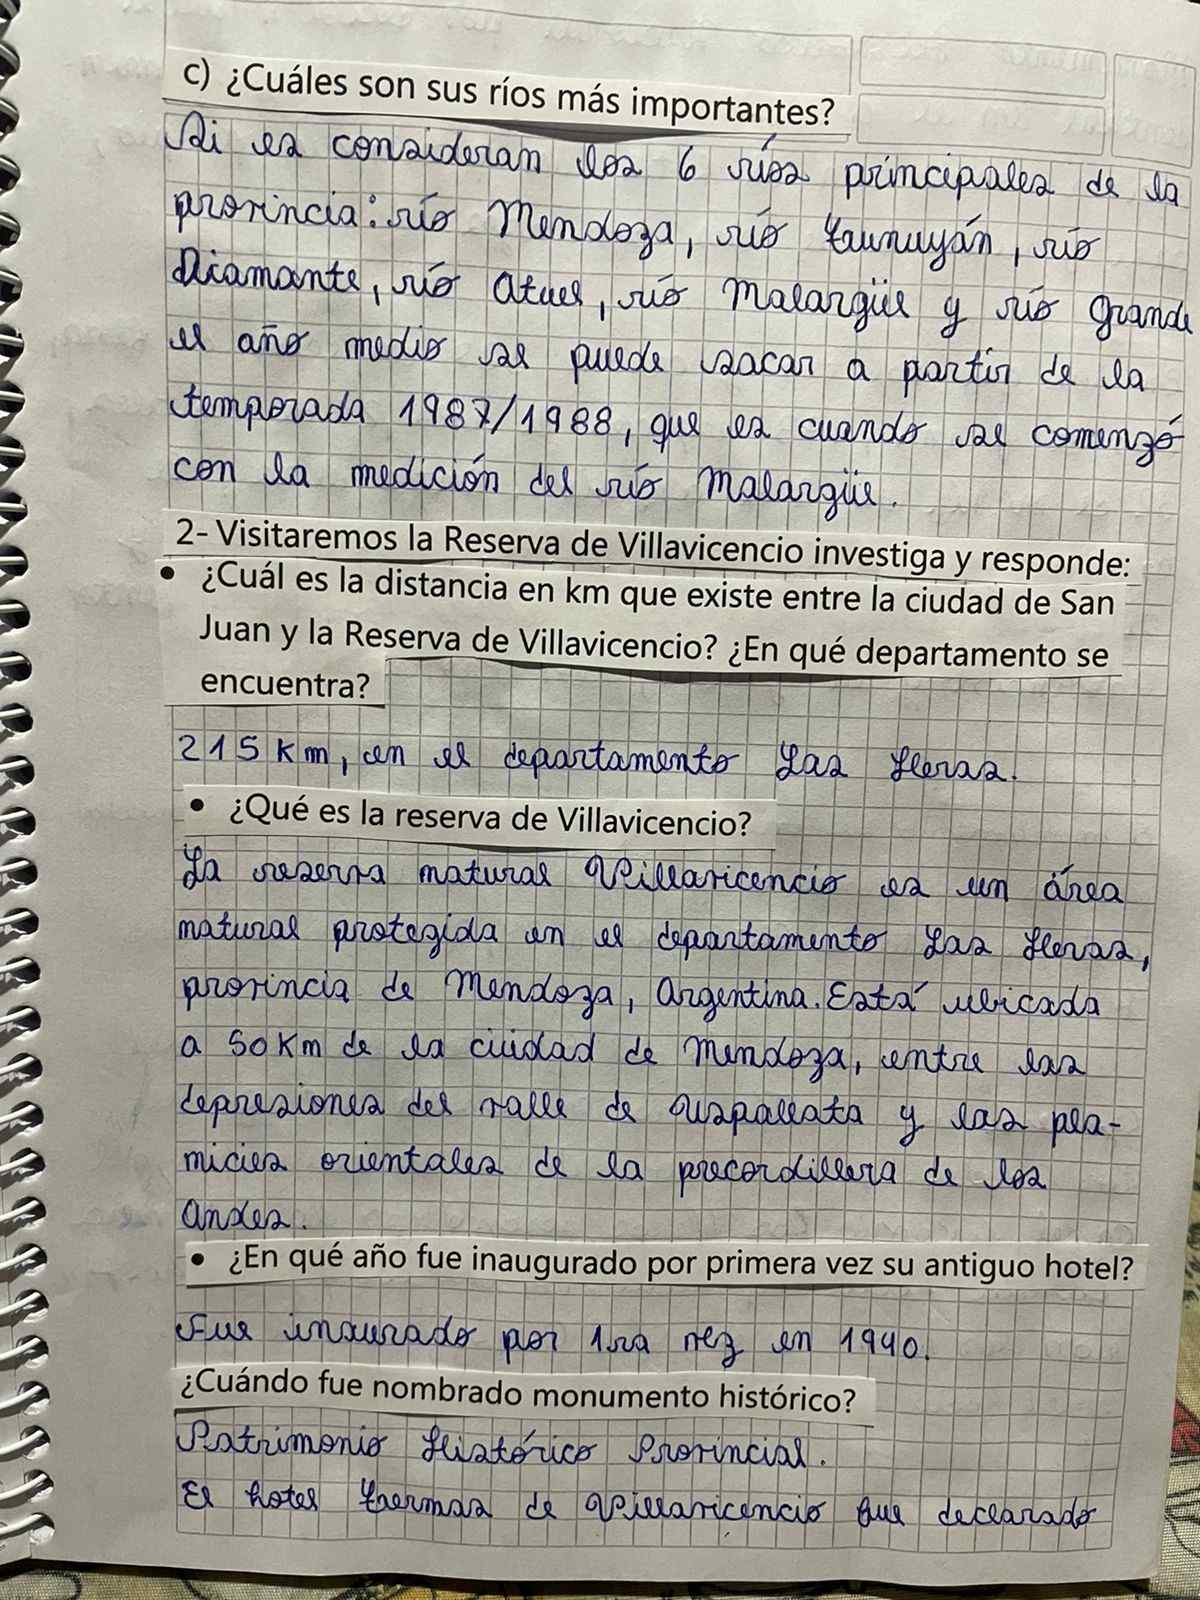 c) ¿Cuáles son sus ríos más importantes?
Si es consideran los 6 ríos principales de la
provincia: río Mendoza, río Tunuyán, río
Diamante, río Atuel, río Malargüe y río Grande
el año medio se puede sacar a partir de la
temporada 1987/1988, que es cuando se comenzó
con la medición del río Malargüe.
2- Visitaremos la Reserva de Villavicencio investiga y responde:
• ¿Cuál es la distancia en km que existe entre la ciudad de San
Juan y la Reserva de Villavicencio? ¿En qué departamento se
encuentra?
215 Km, en el departamento Las Heras.
• ¿Qué es la reserva de Villavicencio?
La reserva natural Villavicencio es un área
natural protegida en el departamento Las Heras,
provincia de Mendoza, Argentina. Está ubicada
a 50 Km de la ciudad de Mendoza, entre las
depresiones del valle de Uspallata y las pla-
nicies orientales de la precordillera de los
Andes.
• ¿En qué año fue inaugurado por primera vez su antiguo hotel?
Fue inaurado por 1ra vez en 1940.
¿Cuándo fue nombrado monumento histórico?
Patrimonio Histórico Provincial.
El hotel termas de Villavicencio fue declarado